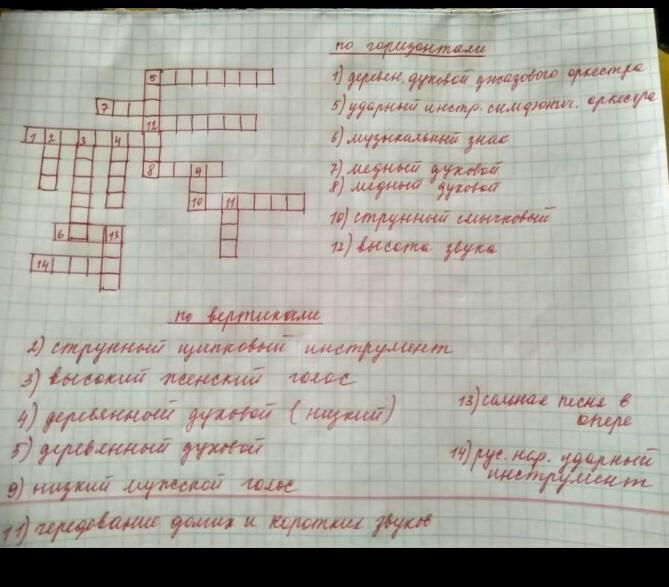 по горизонтали
1) деревен. духовой джазового оркестра
5) ударный инстр. симфонич. оркестра
6) музыкальный знак
7) медный духовой
8) медный духовой
10) струнный смычковый
12) высота звука
5
7
12
1 2 3 4
8 9
10 11
6 13
14
по вертикали
2) струнный щипковый инструмент
3) высокий женский голос
4) деревянный духовой (низкий)
5) деревенный духовой
9) низкий мужской голос
11) чередование долих и коротких звуков
13) сольная песня в
опере
14) рус. нар. ударный
инструмент